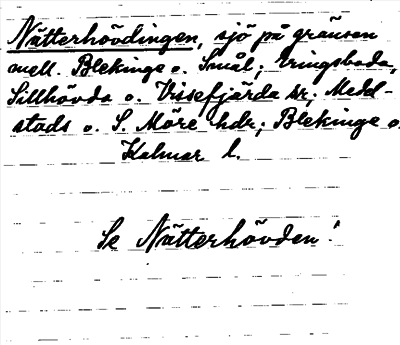 Nätterhövdingen, sjö på gränsen
mell. Blekinge o. Smål; Eringsboda,
Sillhövda o. Vissefjärda sr; Medel-
stads o. S. Möre hdr; Blekinge o.
Kalmar l.
Se Nätterhövden!